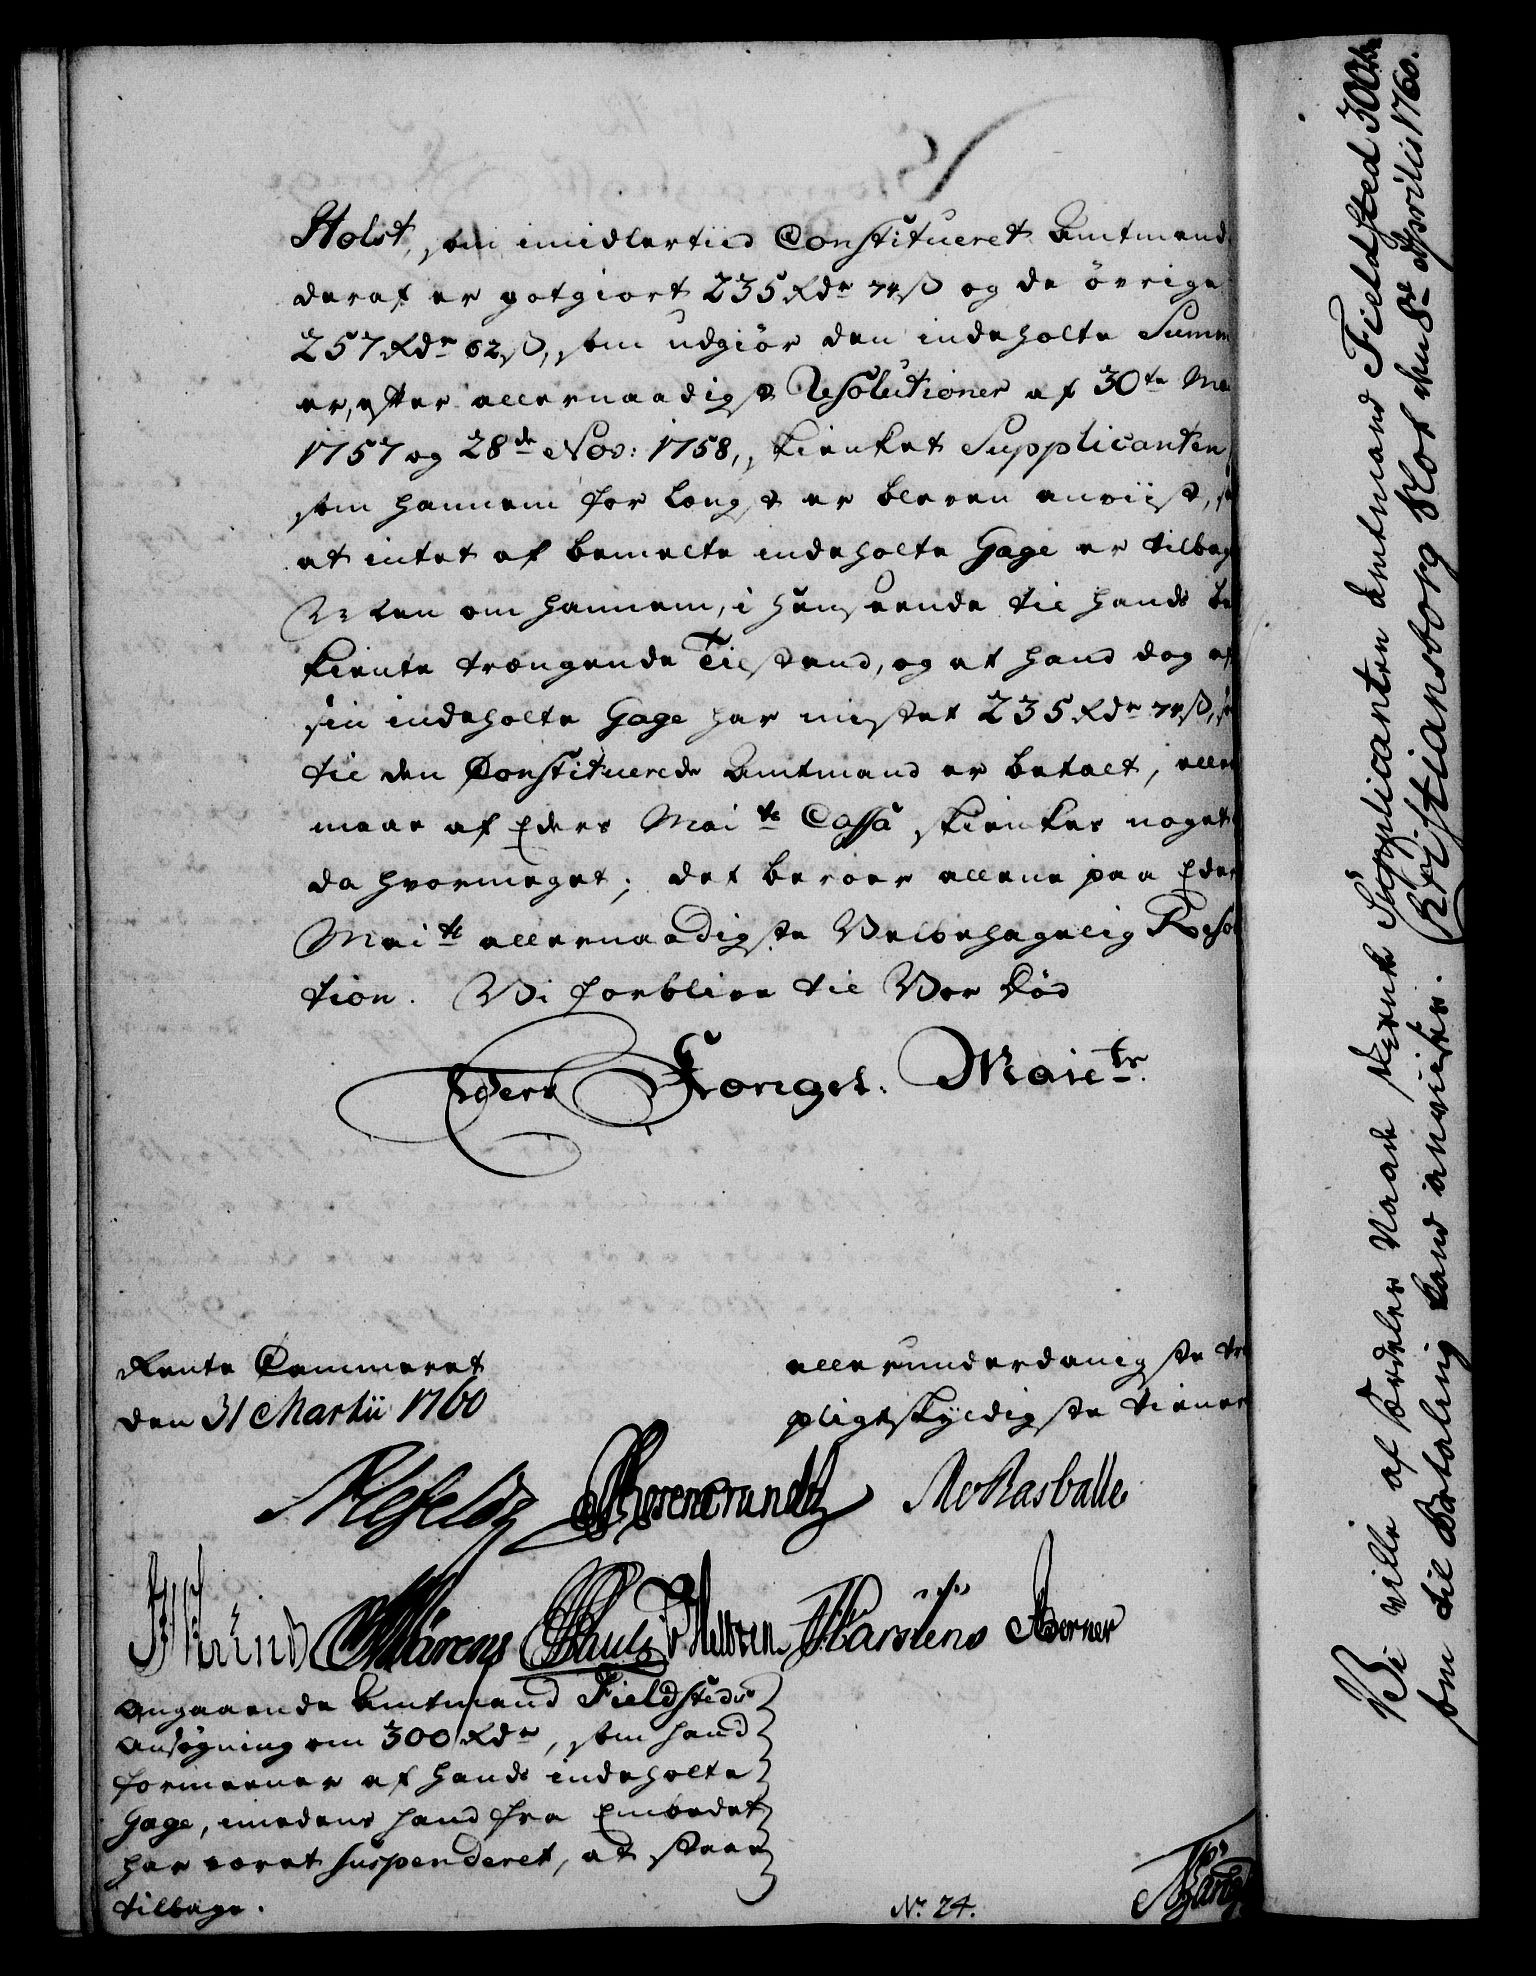 Holst, som imidlertiid Constitueret Amtmand
deraf er gotgiort 235 Rdr 74 ß og de övrige
257 Rdr 62 ß, som udgiör den indeholte Summ
er, efter allernaadigst Resolutioner af 30te Ma
1757 og 28de Nov: 1758, skienket Supplicanten
som hannem for længst er bleven anviist, s
at intet af bemelte indeholte Gage er tilbag
Men om hannem, i henseende til hands be
kiente trængende Tilstand, og at hand dog af
sin indeholte Gage har mistet 235 Rdr 74 ß, s
til den Constituerede Amtmand er betalt, aller
maae af Eders Maits Cassa skienkes noget
da hvormeget; det beroer allene paa Eders
Maits allernaadigste Velbehagelig Resol
tion. Vi forblive til Vor Död
Eders Konget. Maiets.
Rente Cammeret
den 31 Martii 1760
allerunderdanigste tr
pligtskyldigste tiener
Ahlefeldt
Rosencrandtz
Rasballe
Schultz
Karstens
Berner
Angaaende Amtmand Fieldsteds
Ansögning om 300 Rdr, som hand
formeener af hands indeholte
Gage, imedens hand fra Embedet
har været suspenderet, at staae
tilbage.
No. 24.
Vi ville af særdeles Naade skienke Supplicanten Amtmand Fieldsted 300 Rdr
som til Betaling kand anvises. Christiansborg Slot den 8de Aprilis 1760.